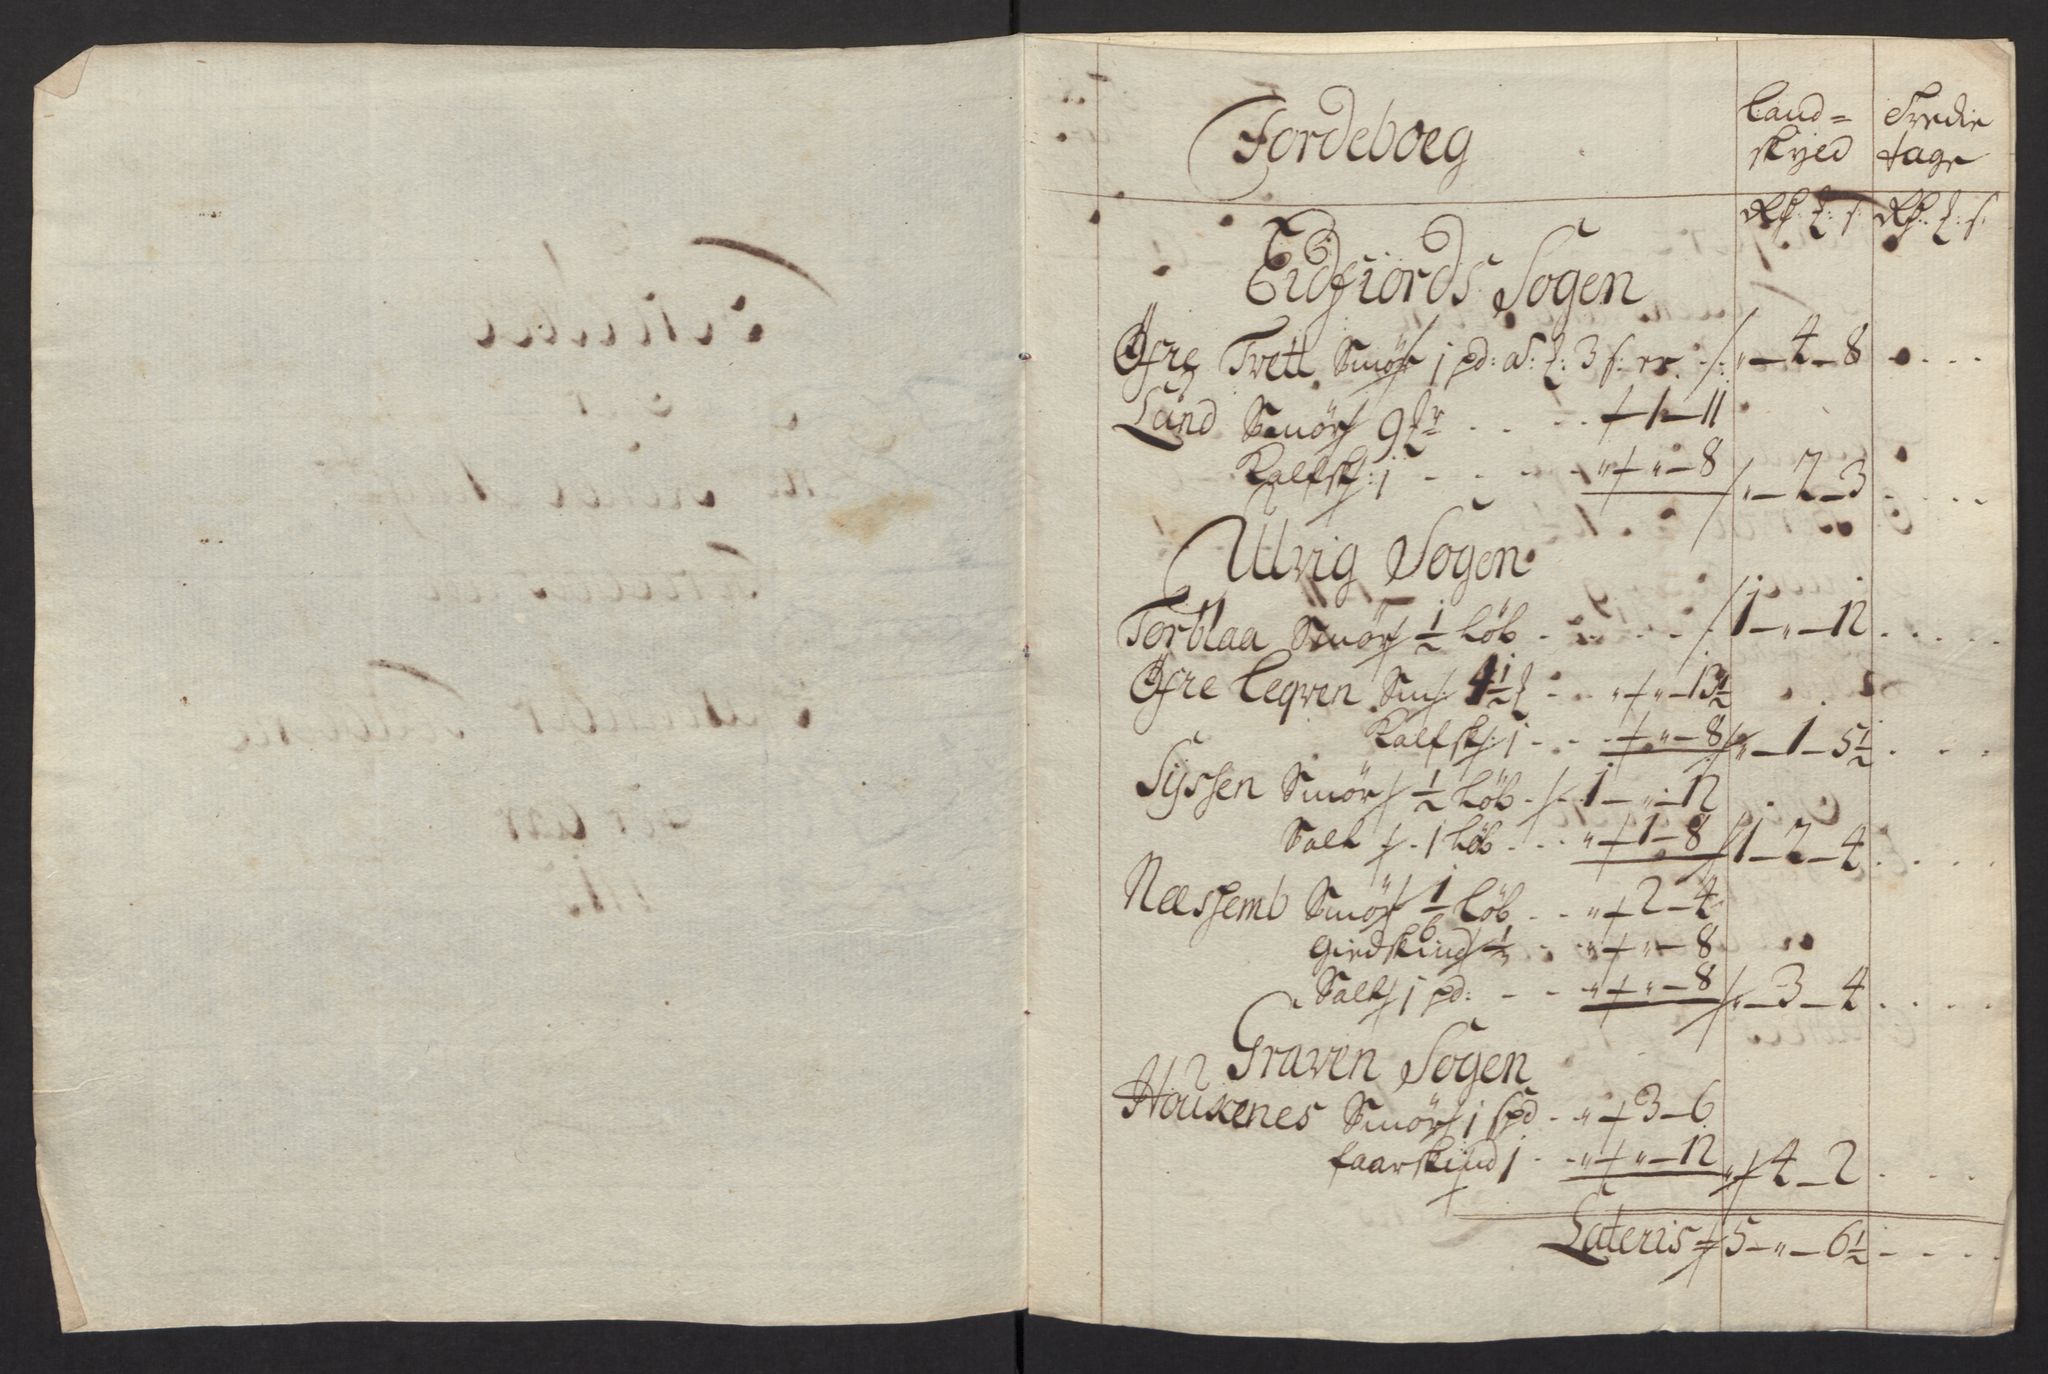 Land=
Tredie
Jordeboeg
skyed
tage
Rdr: ℔: s: Rdr: ℔: s:
Eidfiords Sogen
Øfre Tvett Smør 1 pd: a ℔: 3 s: er ./. " — 4 — 8
Lund Smør 9 ℔r . . . . 1 — 11
Kalfsk: 1 - - - " — " — 8 " — 2 — 3
Ulvig Sogen
Torblaa Smør 1/2 Løb - - - - 1 — " — 12
Øfre Leqven Sm: 4 1/2 ℔ - - " — " — 13 1/2
Kalfsk: 1 - - - " — 8 " — 1 — 5 1/2
Syssen Smør 1/2 Løb - 1 — " — 12
Salt - 1 Løb - - - " 1 — 8 1 — 2 — 4
Næssemb Smør 1/6 Løb - - " 2 — 4
Giedskind 1/2 - - " — " — 8
Salt 1 pd: - - " — " — 8 " — 3 — 4
Graven Sogen
Houxenes Smør 1 spd - " 3 — 6
faarskind 1 - - " — " — 12 " 4 — 2
Lateris 5 — " — 6 1/2